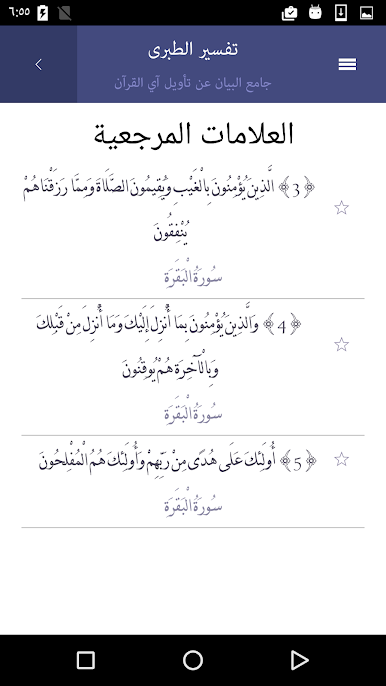 ٦:٥٥
تفسير الطبرى
جامع البيان عن تأويل آي القرآن
العلامات المرجعية
﴿3﴾ الَّذِينَ يُؤْمِنُونَ بِالْغَيْبِ وَيُقِيمُونَ الصَّلَاةَ وَمِمَّا رَزَقْنَاهُمْ
يُنْفِقُونَ
سُورَةُ الْبَقَرَةِ
﴿4﴾ وَالَّذِينَ يُؤْمِنُونَ بِمَا أُنْزِلَ إِلَيْكَ وَمَا أُنْزِلَ مِنْ قَبْلِكَ
وَبِالْآخِرَةِ هُمْ يُوقِنُونَ
سُورَةُ الْبَقَرَةِ
﴿5﴾ أُولَئِكَ عَلَى هُدًى مِنْ رَبِّهِمْ وَأُولَئِكَ هُمُ الْمُفْلِحُونَ
سُورَةُ الْبَقَرَةِ